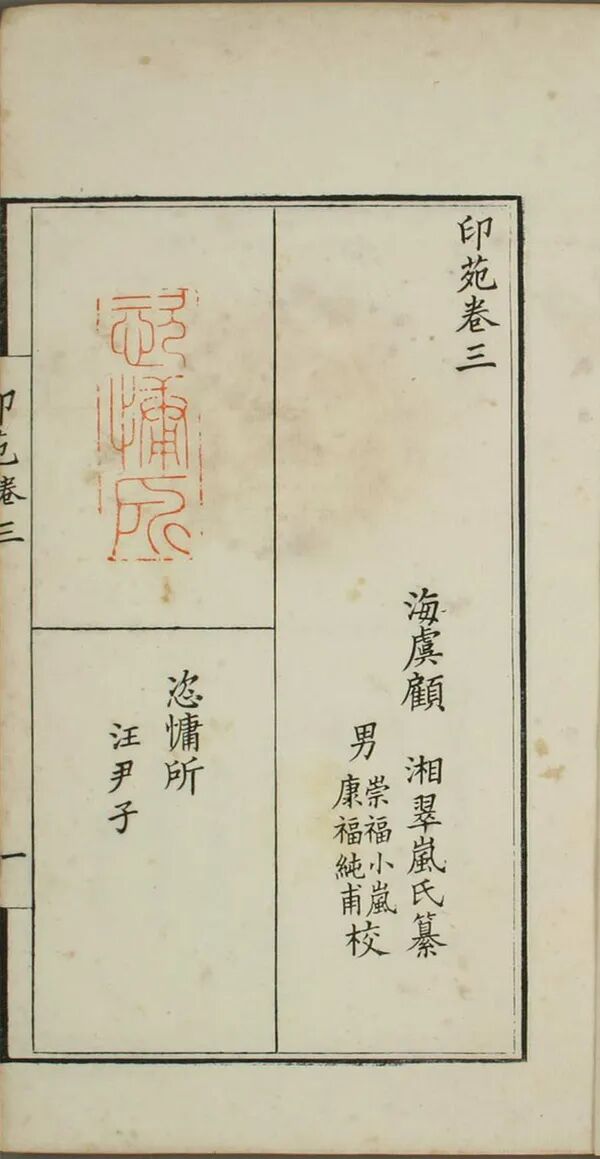 印苑卷三
海虞顧　湘翠嵐氏纂
男　崇福小嵐
康福純甫　校
恣慵所
恣慵所
汪尹子
印苑卷三
一